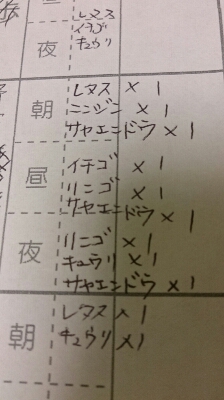 レタス
イチゴ
キュウリ
夜
朝
レタス × 1
ニンジン × 1
サヤエンドウ × 1
昼
イチゴ × 1
リンゴ × 1
サヤエンドウ × 1
夜
リンゴ × 1
キュウリ × 1
サヤエンドウ × 1
朝
レタス × 1
キュウリ × 1